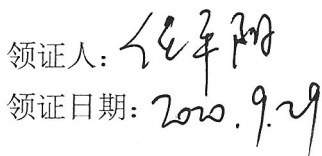 领证人：任平阳
领证日期：2020.9.29